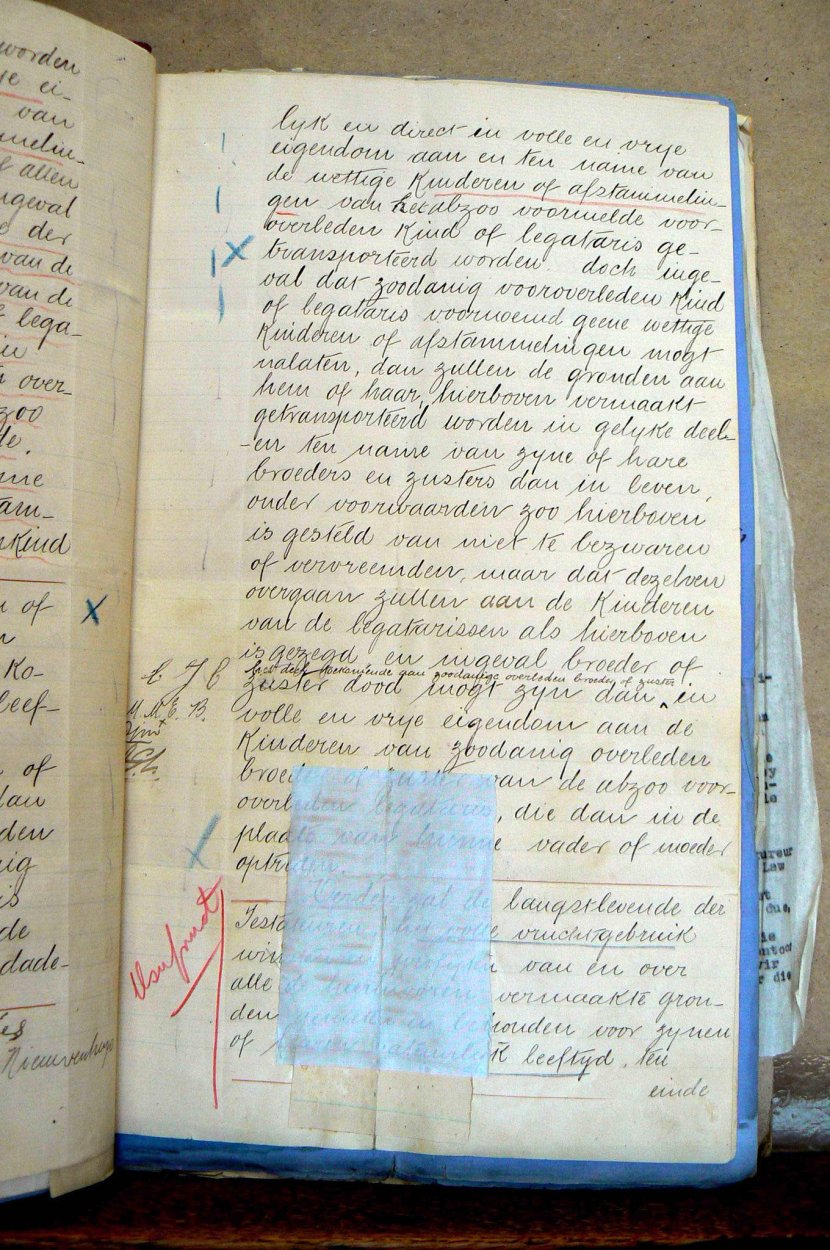 worden
je ei-
van
mmelin-
f allen
ngeval
e der
van de
van de
lega-
in
over-
zoo
de.
me
tam-
nkind
of
Ko-
leef-
of
dan
den
ig
is
de
dade-
Nieuwenhuys
lyk en direct in volle en vrije
eigendom aan en ten name van
de wettige Kinderen of afstammelin-
gen van het abzoo voormelde voor-
overleden Kind of legataris ge-
transporteerd worden. doch inge-
val dat zoodanig vooroverleden Kind
of legataris voornoemd geene wettige
Kinderen of afstammelingen mogt
nalaten, dan zullen de gronden aan
hem of haar, hierboven vermaakt
getransporteerd worden in gelyke deel-
-en ten name van zyne of hare
broeders en zusters dan in leven,
onder voorwaarden zoo hierboven
is gesteld van niet te bezwaren
of vervreemden, maar dat dezelven
overgaan zullen aan de Kinderen
van de legatarissen als hierboven
is gezegd en ingeval broeder of
het deel toekomende aan zoodanige overleden broeder of zuster
zuster dood mogt zyn dan ^ in
volle en vrye eigendom aan de
Kinderen van zoodanig overleden
broeder of zuster van de abzoo voor-
overleden legataris, die dan in de
plaats van hunne vader of moeder
optreden.
Verder zal de langstlevende der
Testateuren, het volle vruchtgebruik
van en over
alle de hiervoren vermaakte gron-
den behouden voor zynen
of haren natuurlyk leeftyd, ten
einde
E J C
M. M. E. B.
Usufruct